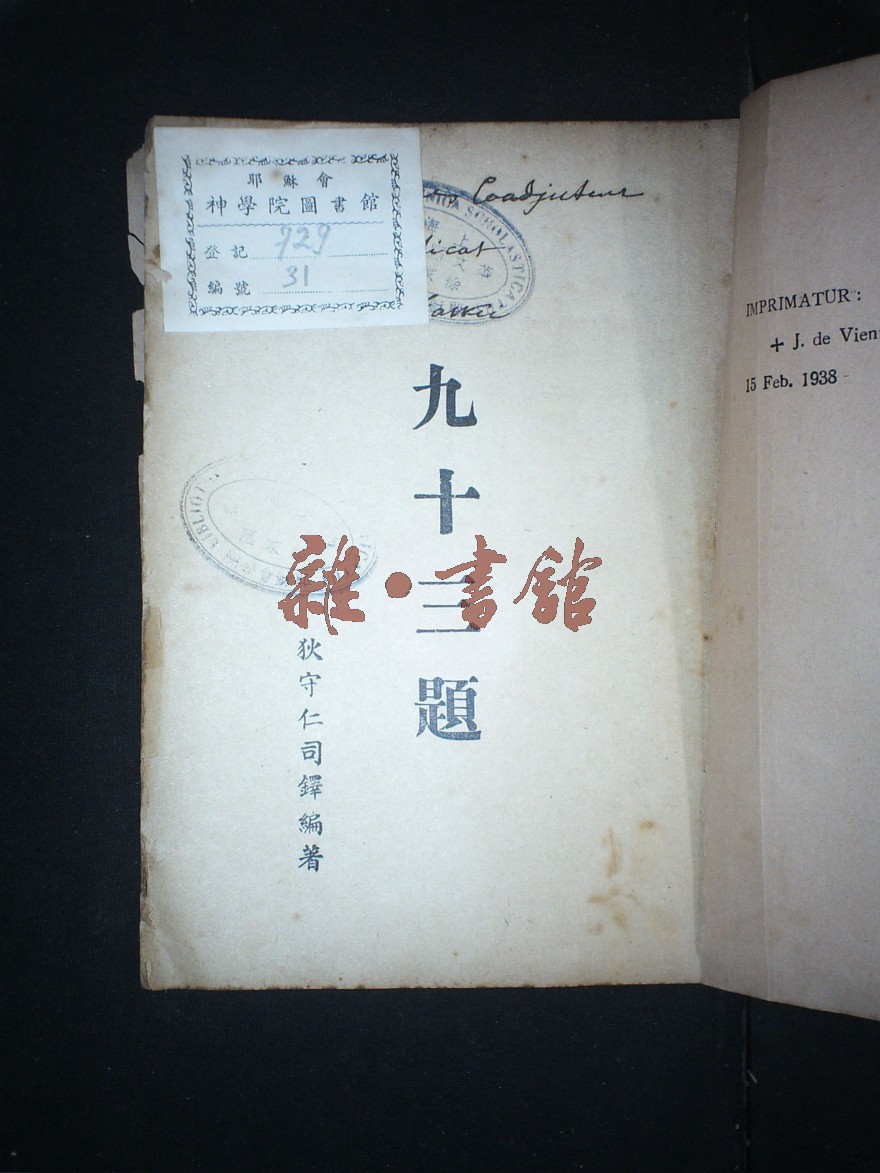 耶穌會
神學院圖書館
登記 729
編號 31
Coadjuteur
九十三題
狄守仁司鐸編著
雜·書館
IMPRIMATUR:
+ J. de Vien
15 Feb. 1938